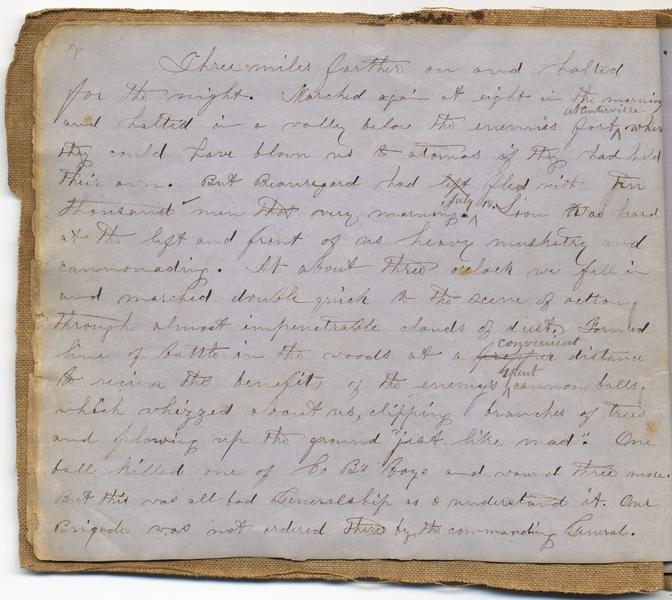 Three miles farther on and halted
for the night. Marched again at eight in the morning
at Centerville
and halted in a valley below the enemies fort where
they could have blown us to atoms if they had held
their own. But Beauregard had left fled with ten
thousand men that very morning.
July 18.
Soon was heard
at the left and front of us heavy musketry and
cannonading. At about three oclock we fell in
and marched double quick to the scene of action,
through almost impenetrable clouds of dust. Formed
convenient
line of battle in the woods at a proper distance
spent
to recieve the benefits of the enemy's cannon balls,
which whizzed about us, clipping branches of trees
and plowing up the ground "just like mad". One
ball killed one of Co B's boys and wound three more.
But this was all bad Generalship as I understand it. Our
Brigade was not ordered there by the commanding General.